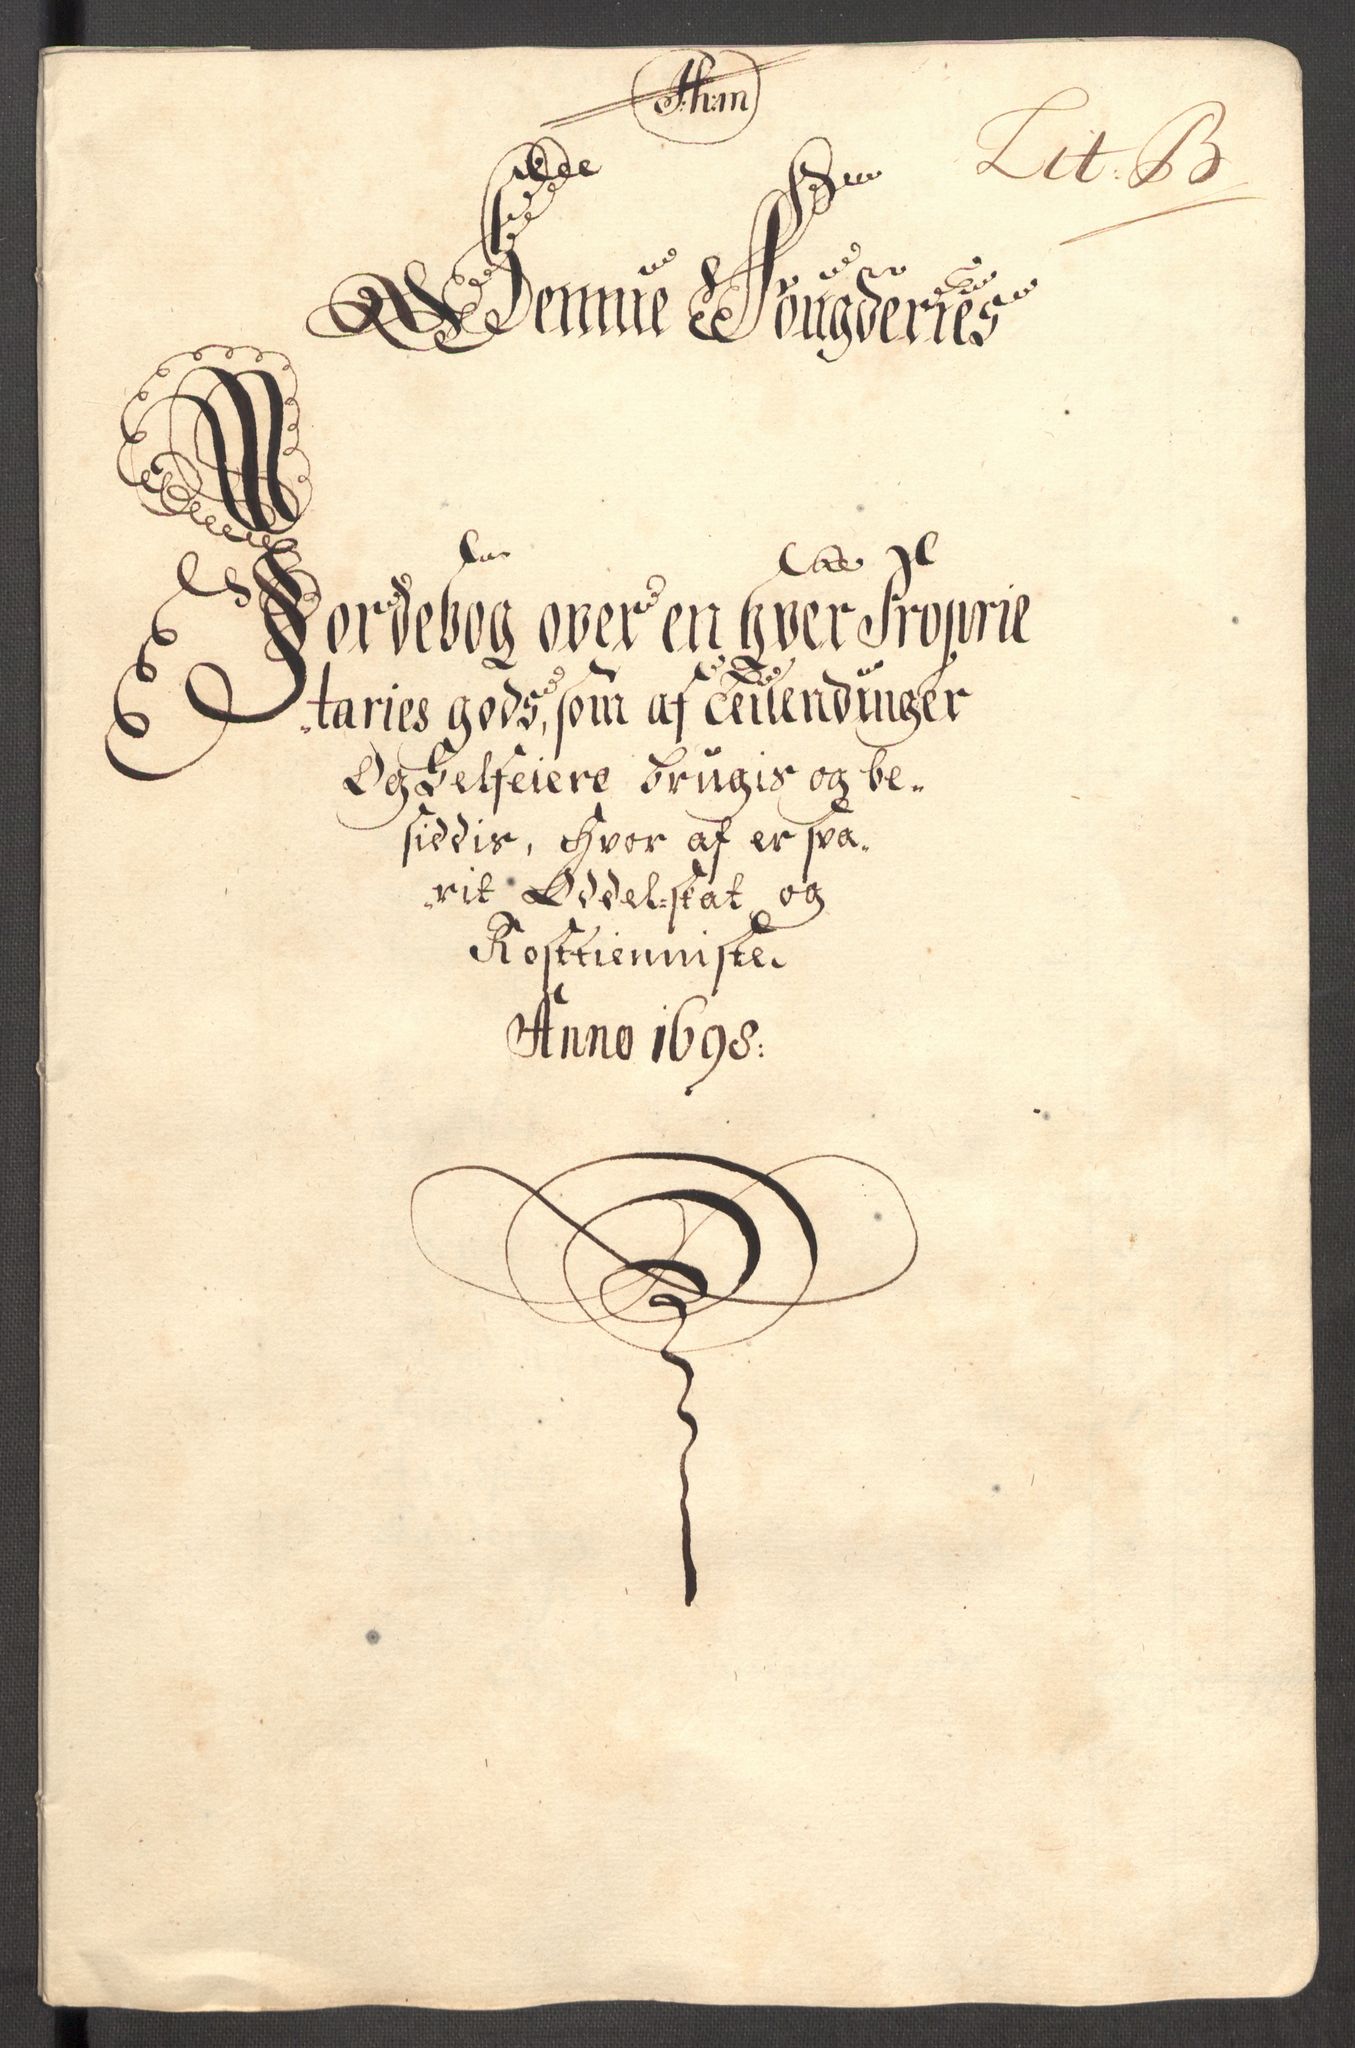 Lit: B
Senniens Fougderies
Jordebog over en hver Proprie
taries gods, som af Leilendinger
Og Selfeiere brugis og be-
siddis, hvor af er sva-
rit Oddel:skat og
Rosttienniste.
Anno 1698: